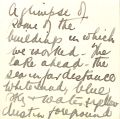 A glimpse of
some of the
buildings in which
we worked. The
lake ahead. The
sea in far distance
white sand, blue
sky & water & yellow
dust in foreground